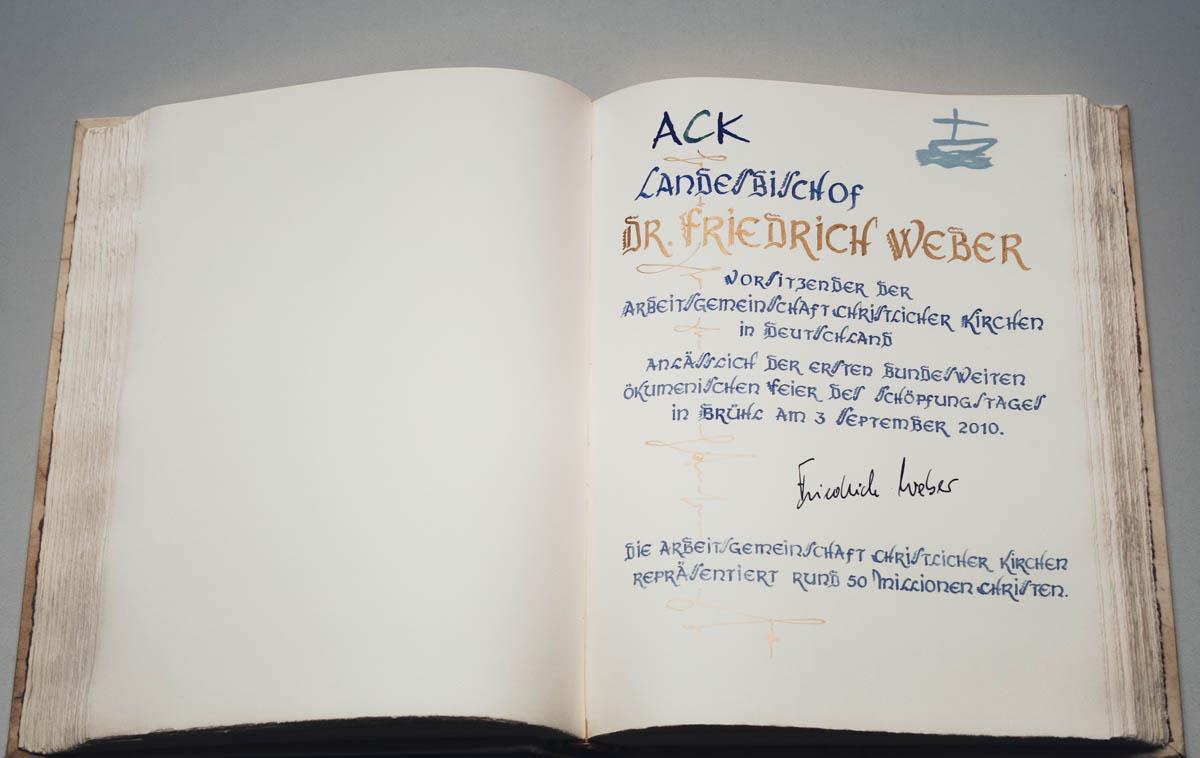 ACK
LANDESBISCHOF
DR. FRIEDRICH WEBER
VORSITZENDER DER
ARBEITSGEMEINSCHAFT CHRISTLICHER KIRCHEN
in DEUTSCHLAND
ANLÄSSLICH DER ERSTEN BUNDESWEITEN
ÖKUMENISCHEN FEIER DES SCHÖPFUNGSTAGES
in BRÜHL AM 3 SEPTEMBER 2010.
Friedrich Weber
DIE ARBEITSGEMEINSCHAFT CHRISTLICHER KIRCHEN
REPRÄSENTIERT RUND 50 MILLIONEN CHRISTEN.